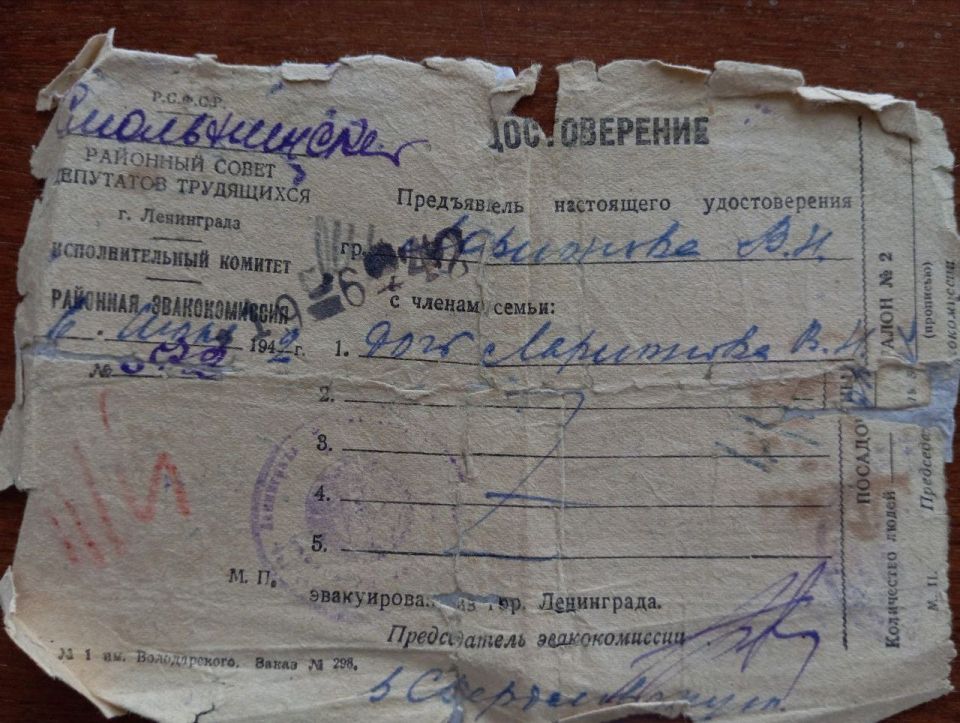 Р.С.Ф.С.Р.
Смольнинский
РАЙОННЫЙ СОВЕТ
ДЕПУТАТОВ ТРУДЯЩИХСЯ
г. Ленинграда
ИСПОЛНИТЕЛЬНЫЙ КОМИТЕТ
РАЙОННАЯ ЭВАКОКОМИССИЯ
1942 г.
№
ДОСТОВЕРЕНИЕ
Предъявитель настоящего удостоверения
гр. Ларионова В. И.
с членам семьи:
1. дочь Ларионова В. И.
2.
3.
4.
5.
М. П.
эвакуирова из гор. Ленинграда.
Председатель эвакокомиссии
№ 1 им. Володарского. Заказ № 298.
ПОСАДО
АЛОН № 2
Количество людей
(прописью)
М. П. Председ
окомиссии